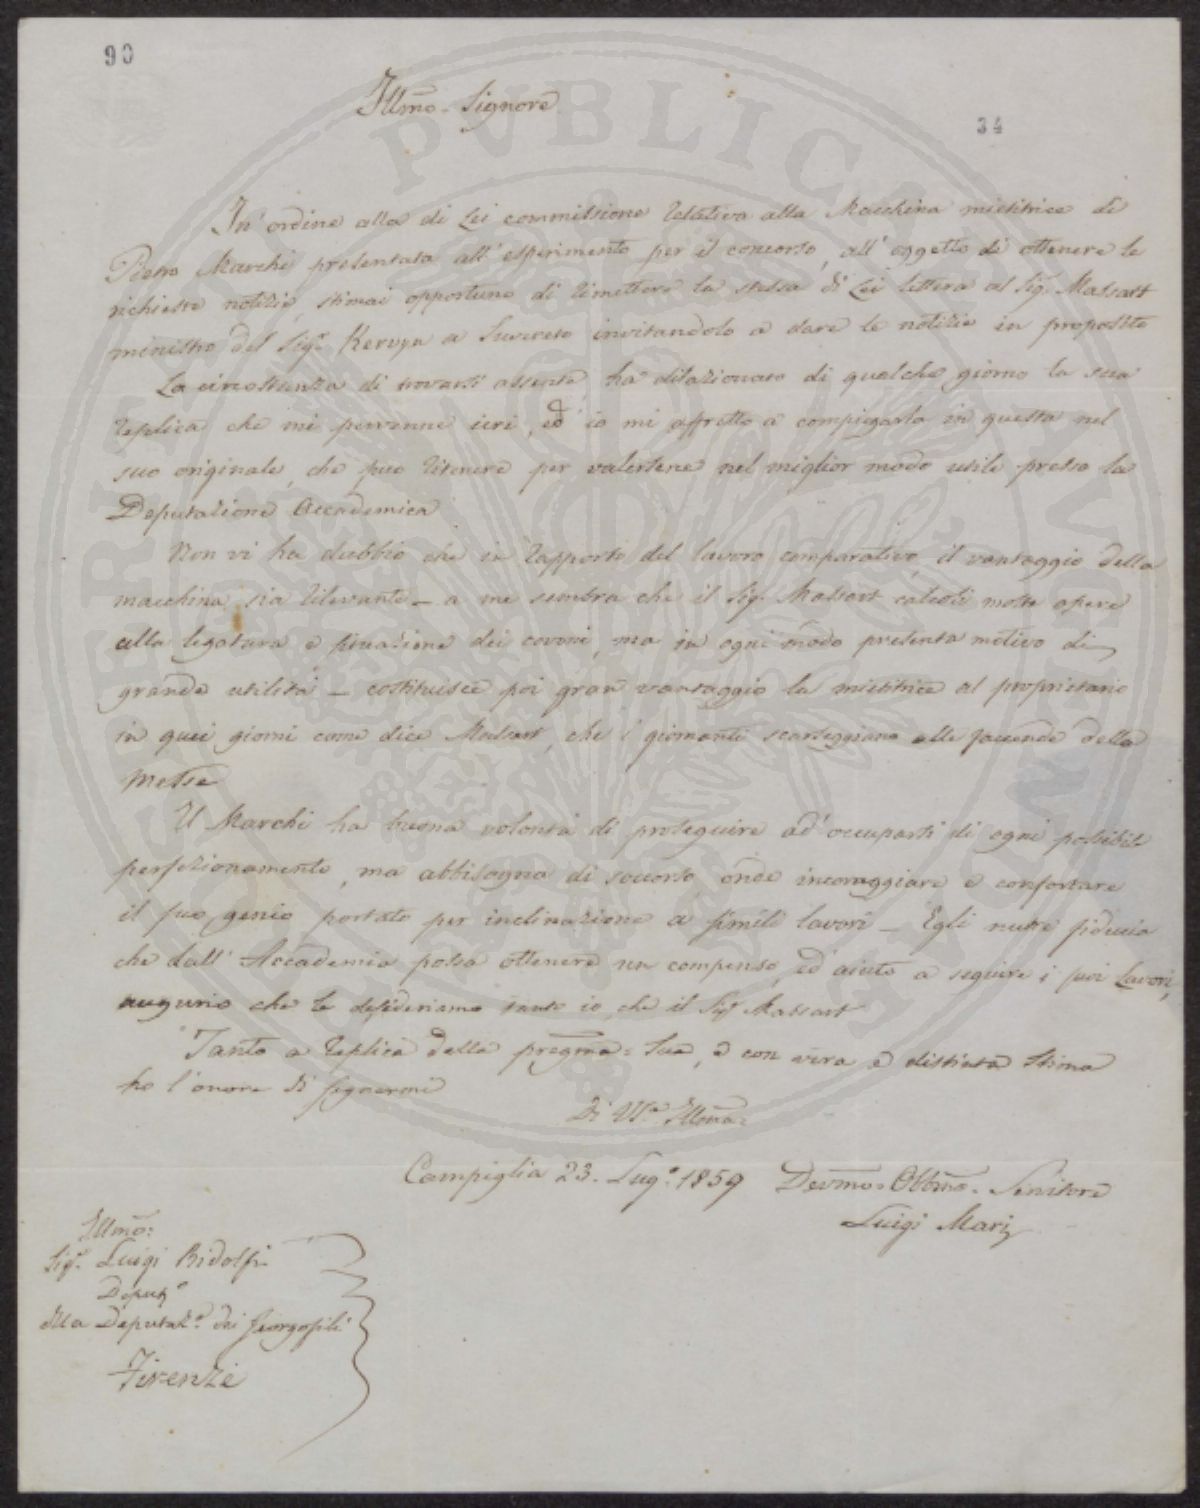 90
34
Illmo. Signore
In ordine alla di Lei commissione relativa alla Macchina mietitrice di
Pietro Marchi presentata all'esperimento per il concorso, all'oggetto di ottenere le
richieste notizie, stimai opportuno di rimettere la stessa di Lei lettera al Sig. Massart
ministro del Sigr. Kervyn a Suvereto invitandolo a dare le notizie in proposito
La circostanza di trovarsi assente, ha dilazionato di qualche giorno la sua
replica che mi pervenne ieri, ed io mi affretto a compiegarla in questa nel
suo originale, che può ritenere per valersene nel miglior modo utile presso la
Deputazione Accademica
Non vi ha dubbio che in rapporto del lavoro comparativo il vantaggio della
macchina sia rilevante - a me sembra che il Sig. Massart calcoli molte opere
alla legatura e situazione dei covoni, ma in ogni modo presenta motivo di
grande utilità - costituisce poi gran vantaggio la mietitrice al proprietario
in quei giorni come dice Massart, che i giornanti scarseggiano alle faccende della
Messe
Il Marchi ha buona volontà di proseguire ad occuparsi di ogni possibile
perfezionamento, ma abbisogna di soccorso onde incoraggiare e confortare
il suo genio portato per inclinazione a simili lavori - Egli nutre fiducia
che dall'Accademia possa ottenere un compenso, ed aiuto a seguire i suoi Lavori,
augurio che le desideriamo tanto io, che il Sigr Massart
Tanto a replica della pregma: Sua, e con vera e distinta stima
ho l'onore di segnarmi
Di VSa. Illma:
Campiglia 23. Lugo. 1859 Devmo. Obbmo. Servitore
Luigi Mari
Illmo:
Sigr. Luigi Ridolfi
Deputo
Alla Deputaze. dei Georgofili
Firenze